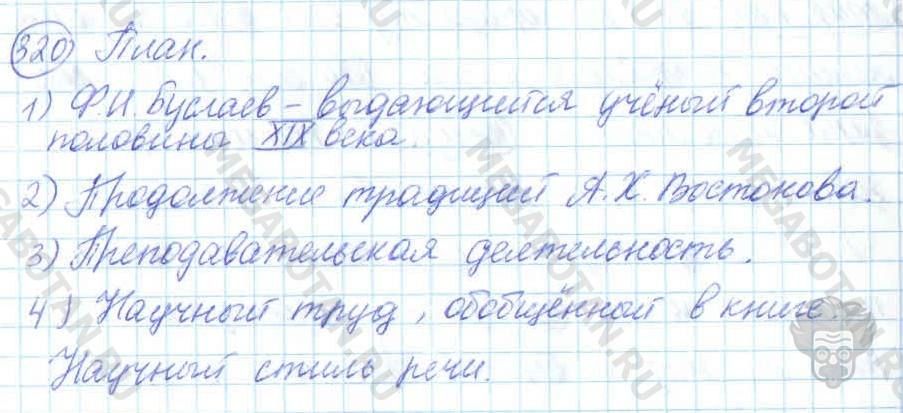 320) План.
1) Ф.И. Буслаев – выдающийся учёный второй
половины XIX века.
2) Продолжение традиций А.Х. Востокова.
3) Преподавательская деятельность.
4) Научный труд, обобщённой в книге.
Научный стиль речи.
MEGABOTAN.RU